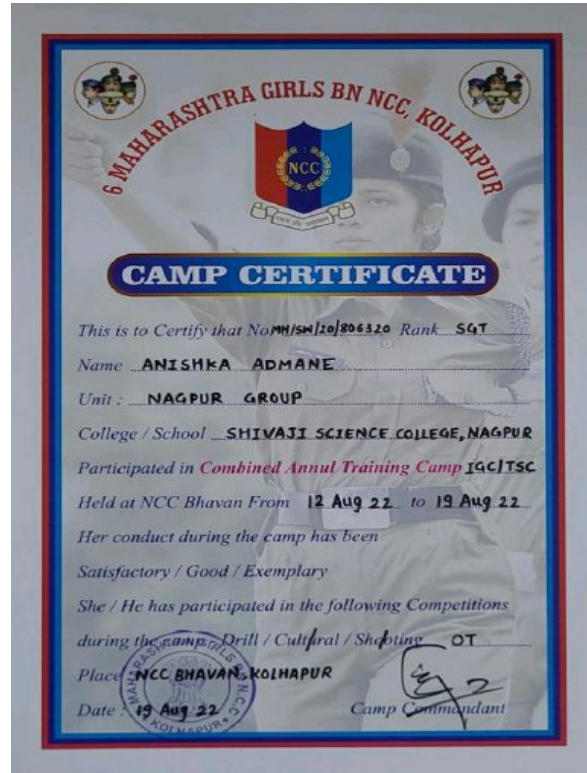 6 MAHARASHTRA GIRLS BN NCC, KOLHAPUR
NCC
CAMP CERTIFICATE
This is to Certify that No MH/SW/20/806320 Rank SGT
Name ANISHKA ADMANE
Unit : NAGPUR GROUP
College / School SHIVAJI SCIENCE COLLEGE, NAGPUR
Participated in Combined Annul Training Camp IGC/TSC
Held at NCC Bhavan From 12 Aug 22 to 19 Aug 22
Her conduct during the camp has been
Satisfactory / Good / Exemplary
She / He has participated in the following Competitions
during the camp Drill / Cultural / Shooting OT
Place NCC BHAVAN, KOLHAPUR
Date : 19 Aug 22 Camp Commandant